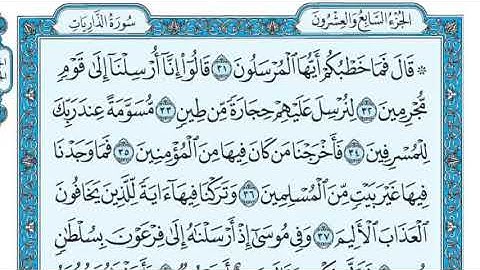 سُورَةُ الذَّارِيَاتِ
الجُزْءُ السَّابِعُ وَالْعِشْرُونَ
* قَالَ فَمَا خَطْبُكُمْ أَيُّهَا ٱلْمُرْسَلُونَ ٣١ قَالُوٓا۟ إِنَّآ أُرْسِلْنَآ إِلَىٰ قَوْمٍ
مُّجْرِمِينَ ٣٢ لِنُرْسِلَ عَلَيْهِمْ حِجَارَةً مِّن طِينٍ ٣٣ مُّسَوَّمَةً عِندَ رَبِّكَ
لِلْمُسْرِفِينَ ٣٤ فَأَخْرَجْنَا مَن كَانَ فِيهَا مِنَ ٱلْمُؤْمِنِينَ ٣٥ فَمَا وَجَدْنَا
فِيهَا غَيْرَ بَيْتٍ مِّنَ ٱلْمُسْلِمِينَ ٣٦ وَتَرَكْنَا فِيهَآ ءَايَةً لِّلَّذِينَ يَخَافُونَ
ٱلْعَذَابَ ٱلْأَلِيمَ ٣٧ وَفِى مُوسَىٰٓ إِذْ أَرْسَلْنَٰهُ إِلَىٰ فِرْعَوْنَ بِسُلْطَٰنٍ